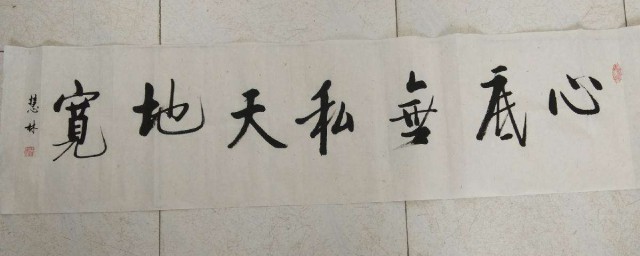 心底無私天地寬
慧林